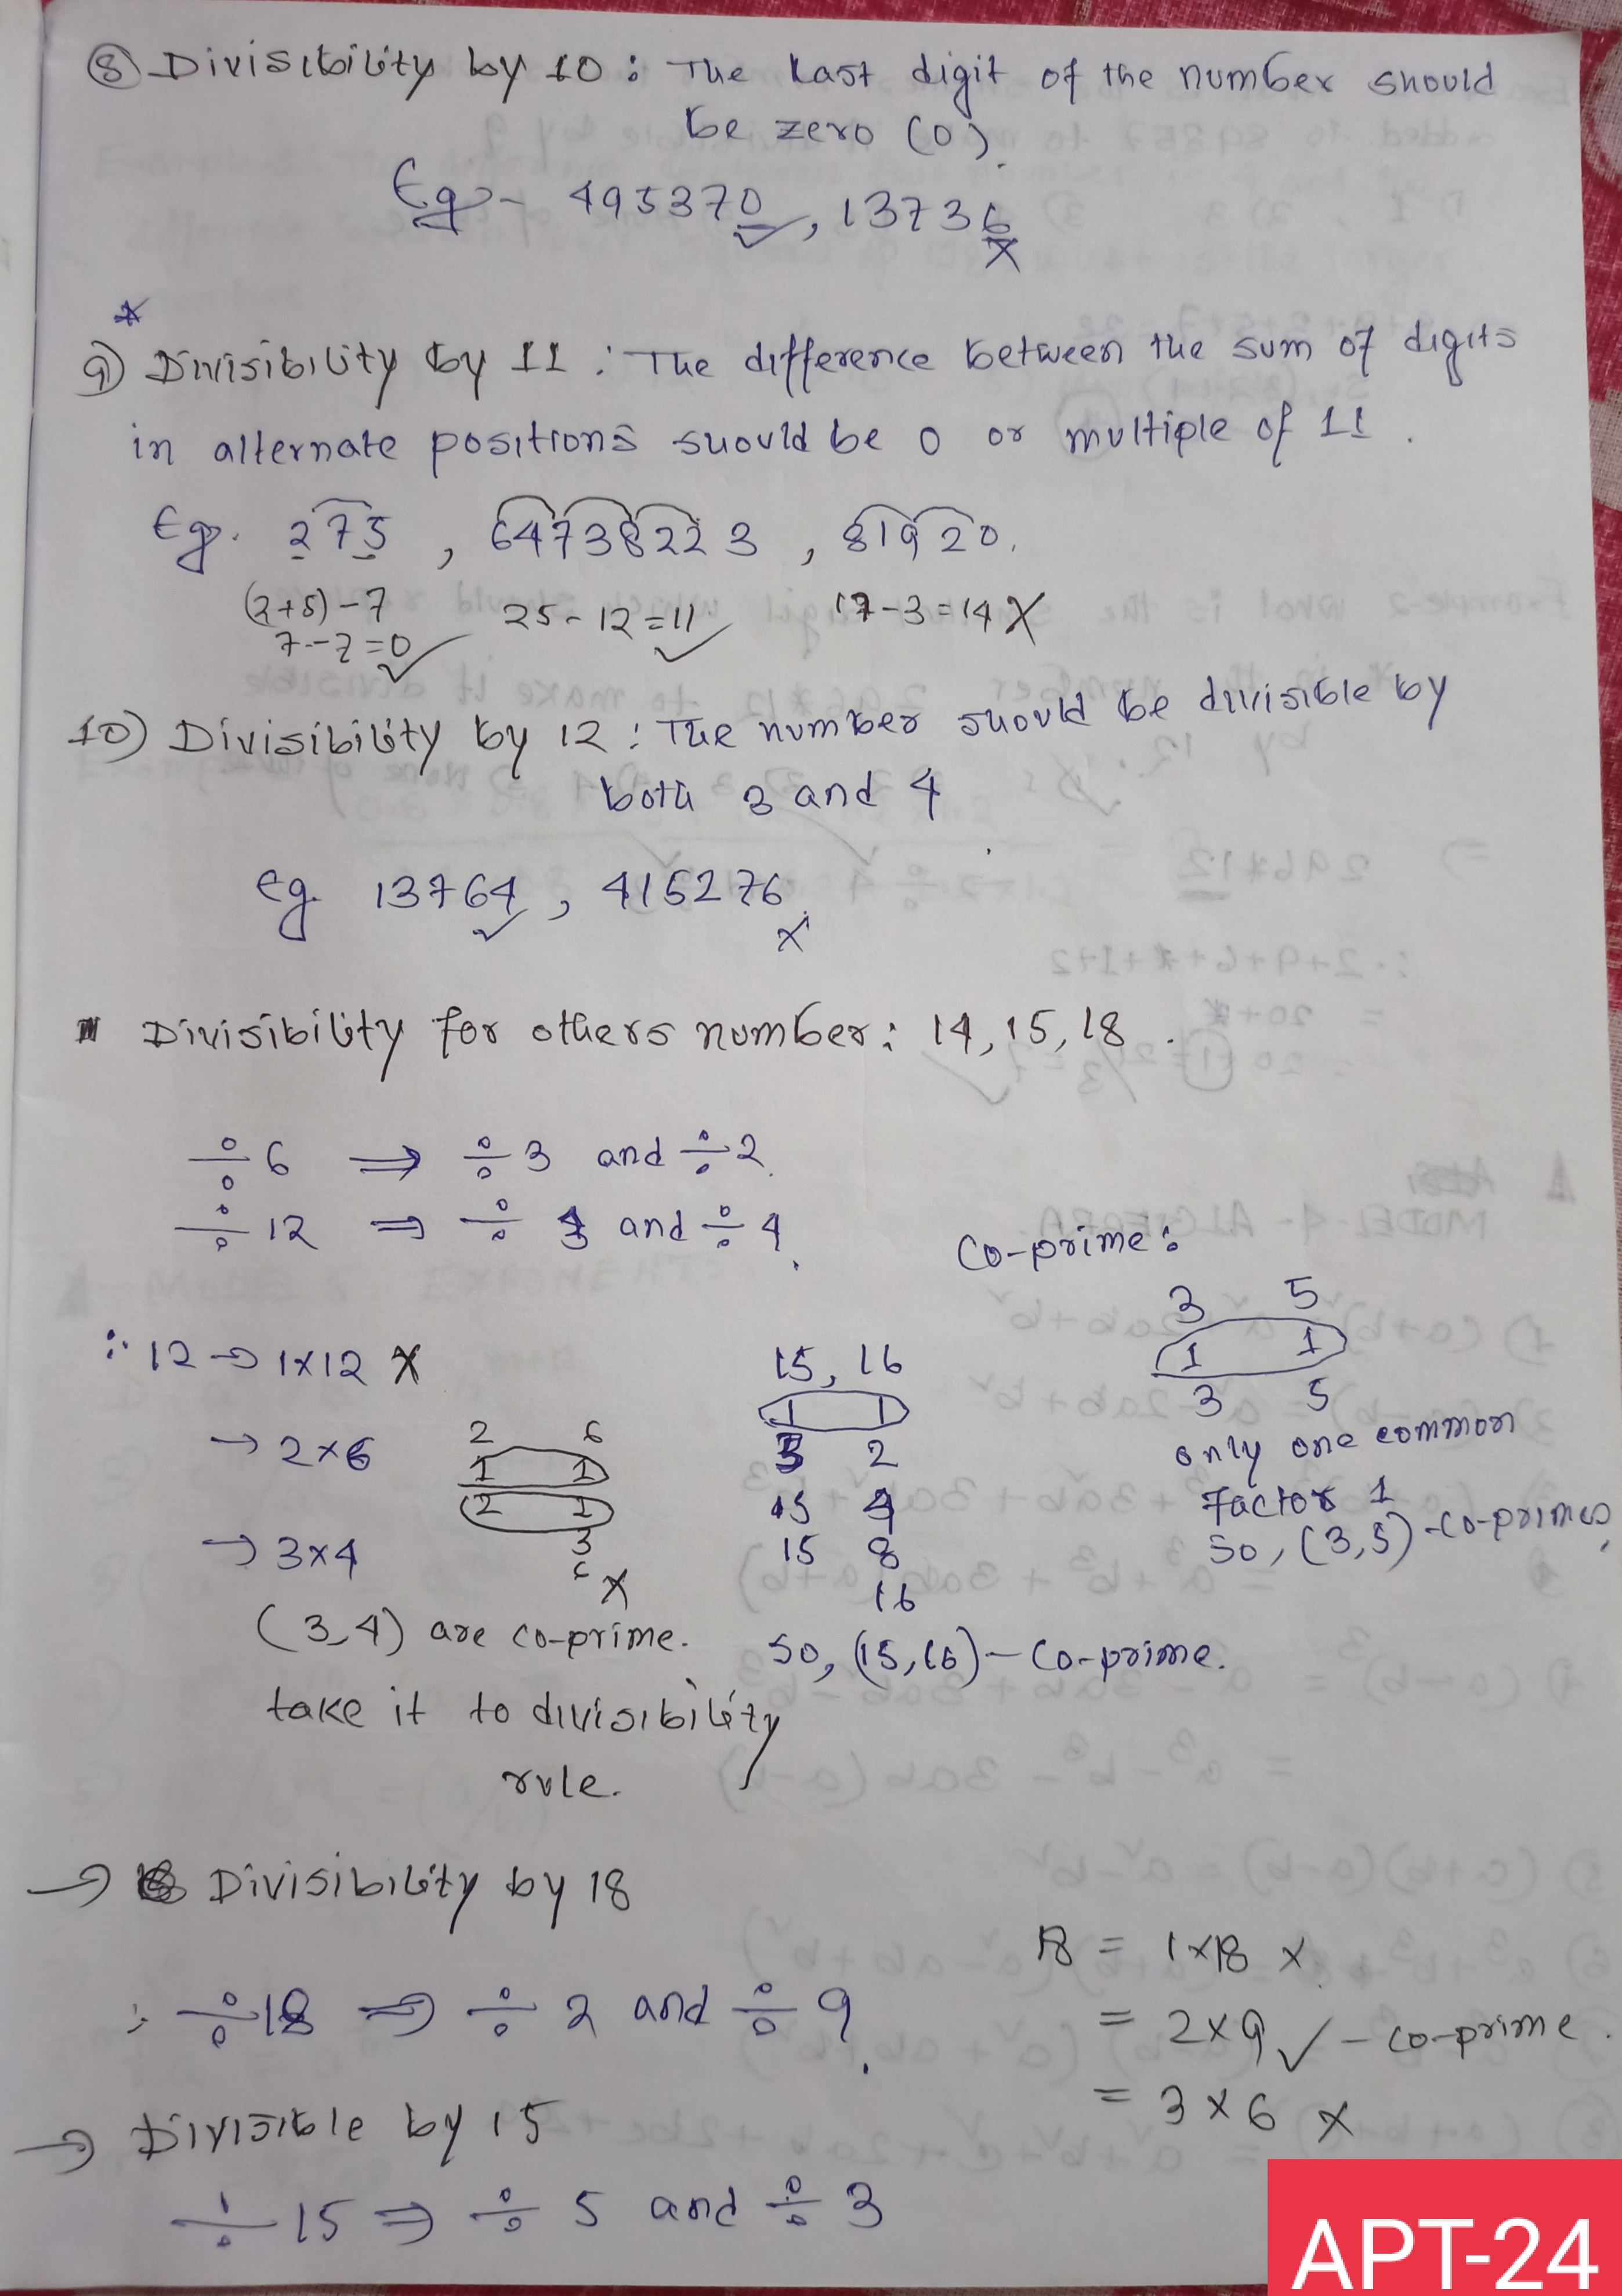 ⑧ Divisibility by 10 : The Last digit of the number should
be zero (0).
Eg - 495370 ✓, 13736 X
*
9) Divisibility by 11 : The difference between the sum of digits
in alternate positions should be 0 or multiple of 11 .
Eg. 275 , 647382223 , 81920.
(2+5)-7
7-7=0 ✓
25-12=11 ✓
17-3=14 X
10) Divisibility by 12 : The number should be divisible by
both 3 and 4
eg. 13764 ✓, 415276 X
Divisibility for others number: 14, 15, 18 .
÷ 6 ⇒ ÷ 3 and ÷ 2.
÷ 12 ⇒ ÷ 3 and ÷ 4.
∴ 12 → 1×12 X
→ 2×6
→ 3×4
2 6
1 1
2 2
3
6 X
(3,4) are co-prime.
take it to divisibility
rule.
15, 16
1 1
3 2
15 4
15 8
16
So, (15,16) - Co-prime.
Co-prime:
3 5
1 1
3 5
only one common
Factor 1
So, (3,5) - Co-primes,
→ Divisibility by 18
∴ ÷ 18 ⇒ ÷ 2 and ÷ 9.
18 = 1×18 X.
= 2×9 ✓ - co-prime .
= 3×6 X
→ Divisible by 15
÷ 15 ⇒ ÷ 5 and ÷ 3
APT-24